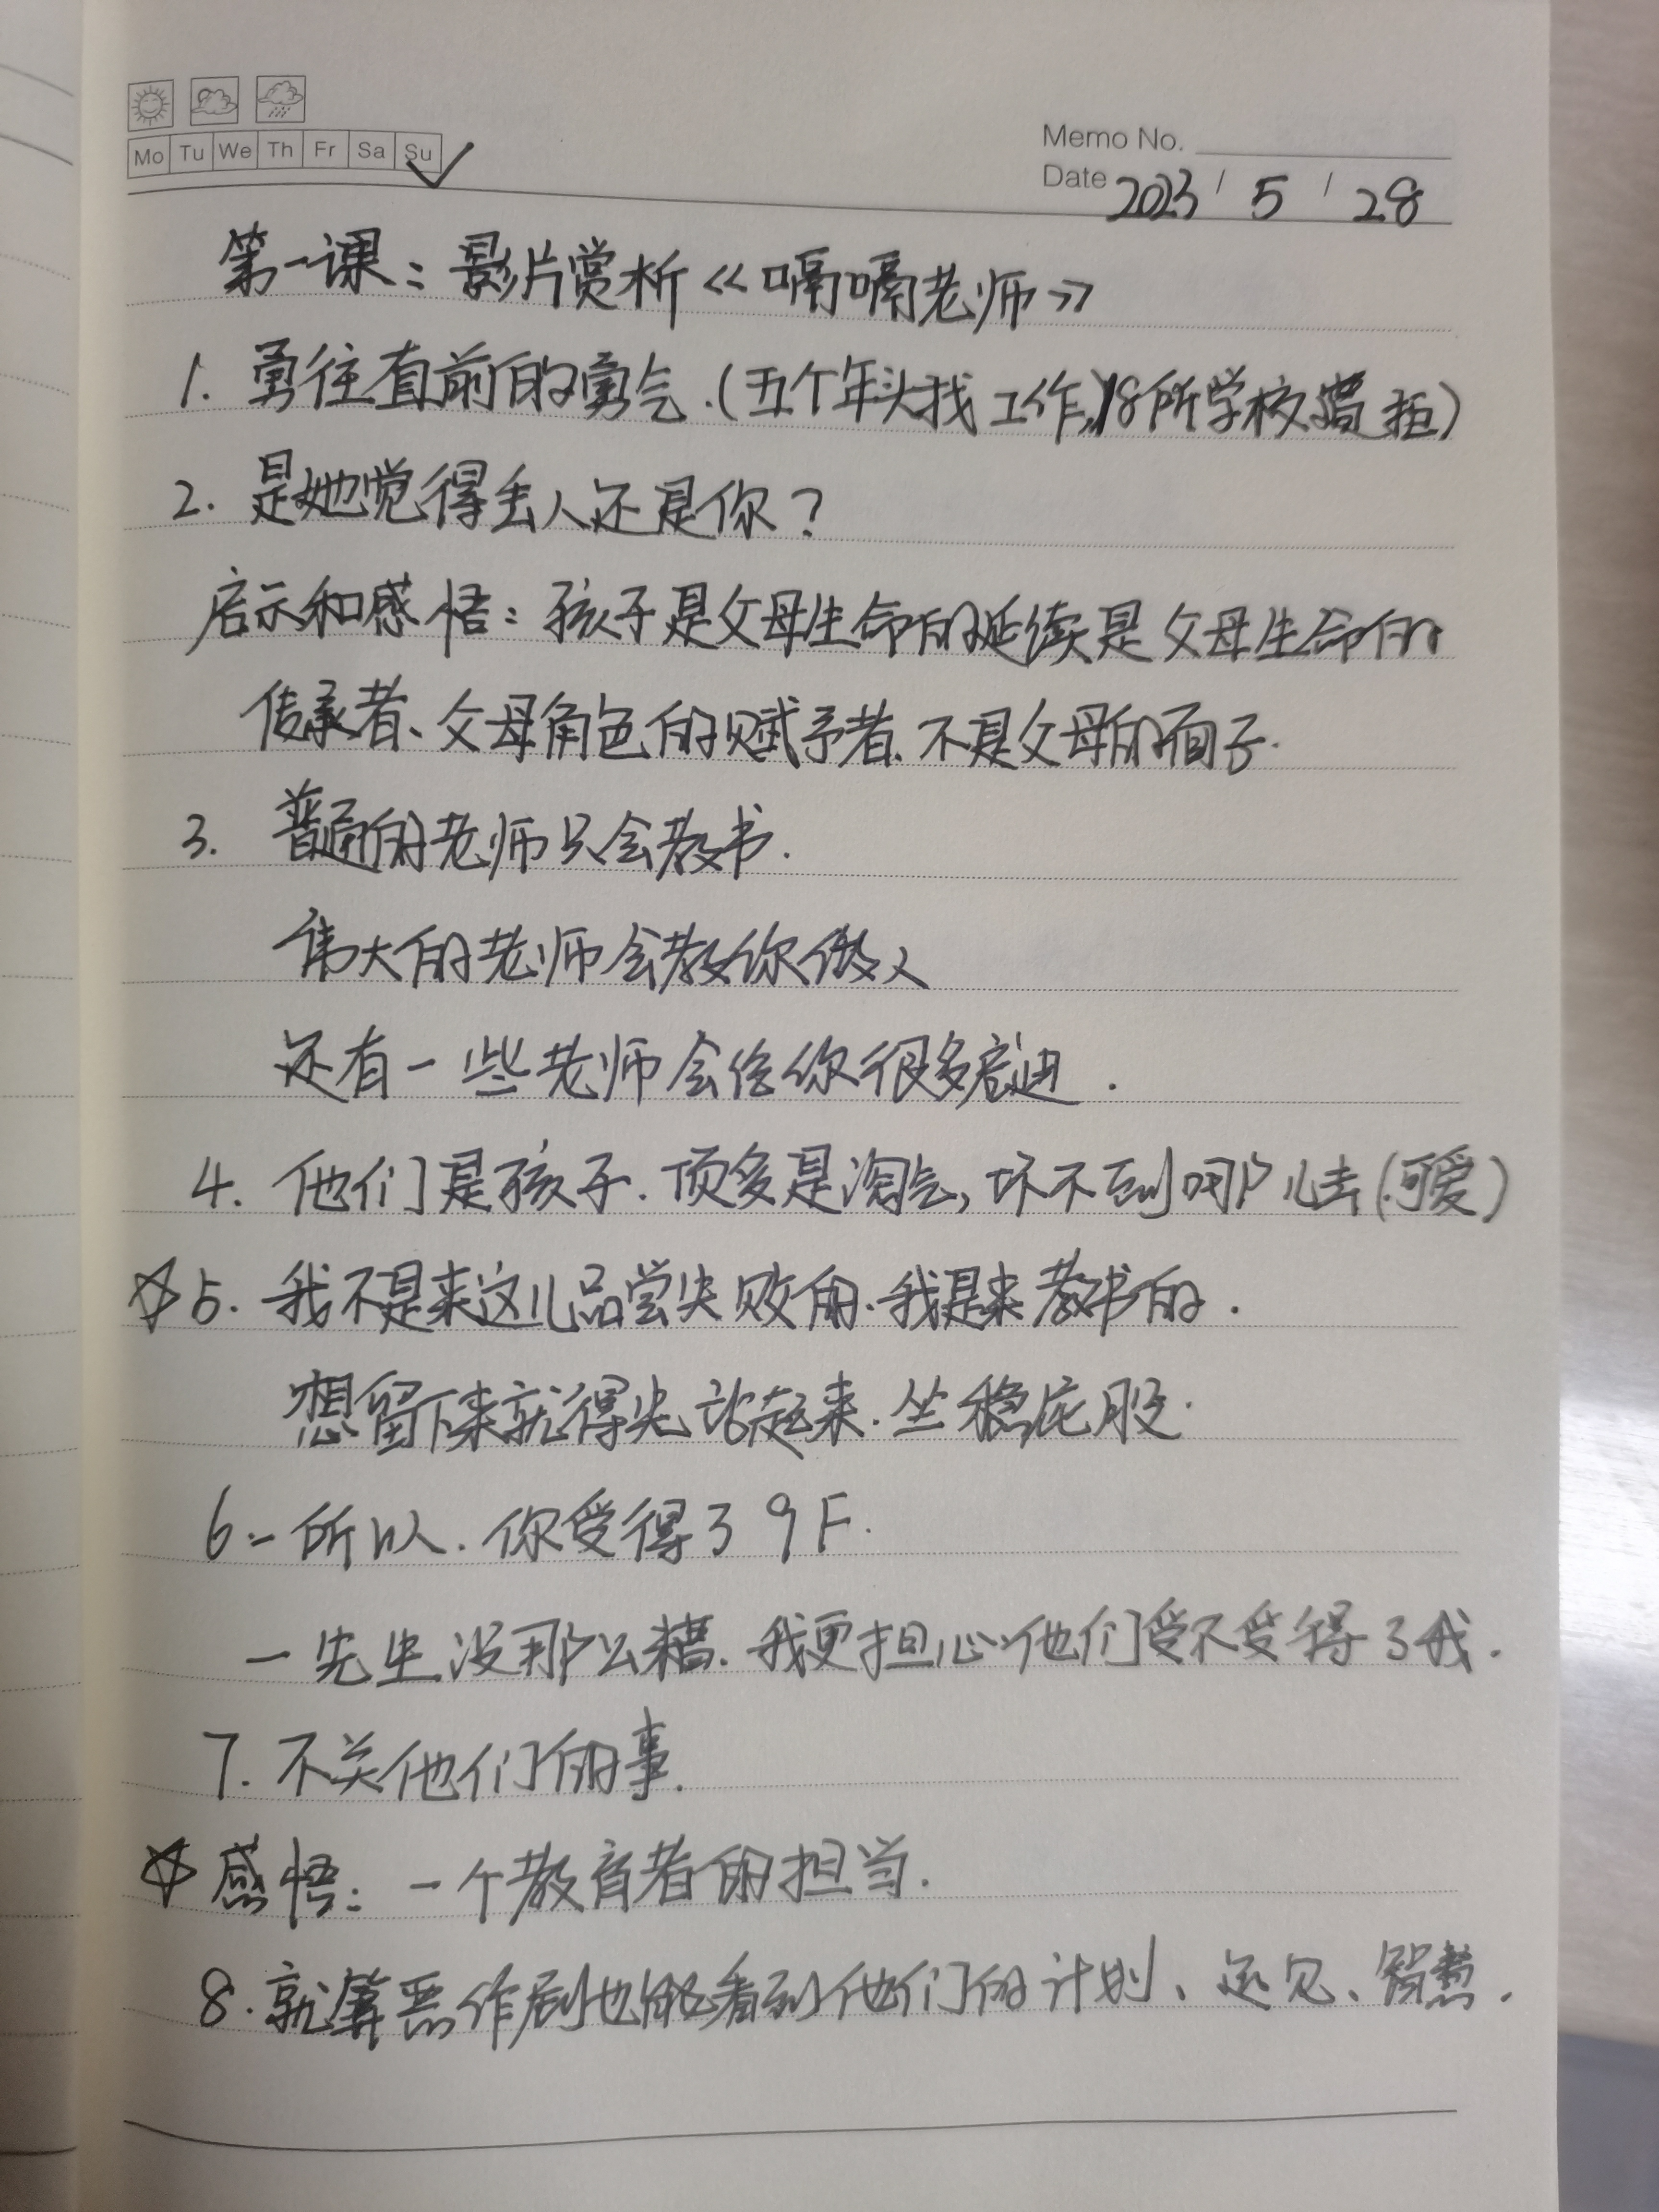 Mo Tu We Th Fr Sa Su
Memo No.
Date 2023 / 5 / 28
第一课：影片赏析《嗝嗝老师》
1. 勇往直前的勇气.(五个年头找工作,18所学校遭拒)
2. 是她觉得丢人还是你?
启示和感悟：孩子是父母生命的延续是父母生命的
传承者、父母角色的赋予者、不是父母的面子.
3. 普通的老师只会教书.
伟大的老师会教你做人
还有一些老师会给你很多启迪.
4. 他们是孩子.顶多是淘气,坏不到哪儿去(可爱)
☆5. 我不是来这儿品尝失败的.我是来教书的.
想留下来就得先站起来.坐稳屁股.
6:- 所以.你受得了9F.
一先生没那么糟.我更担心他们受不受得了我.
7. 不关他们的事.
☆感悟：一个教育者的担当.
8. 就算恶作剧也能看到他们的计划、远见、智慧.